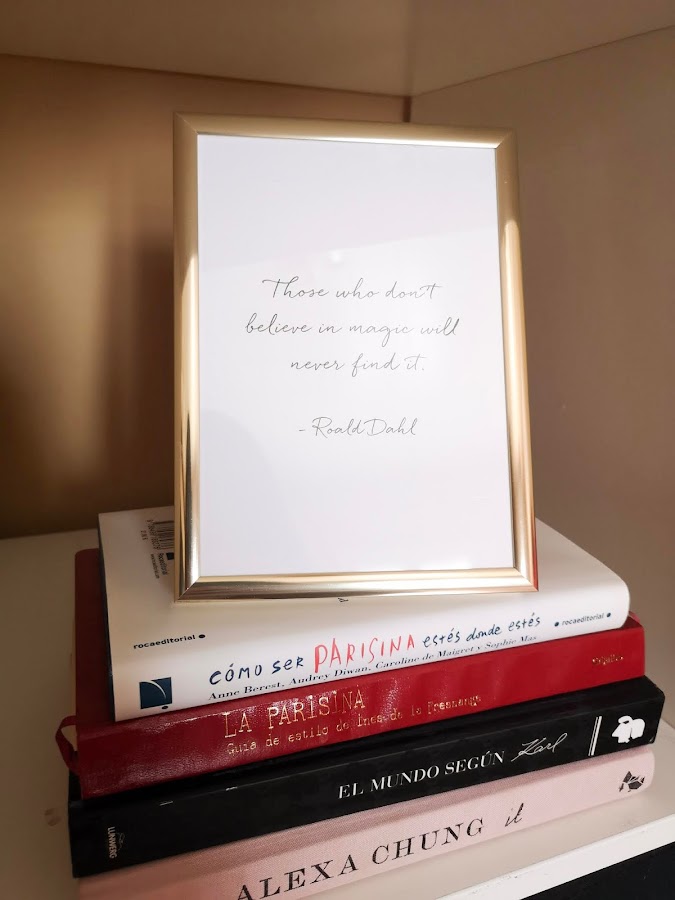 Those who don't
believe in magic will
never find it.
- Roald Dahl
rocaeditorial
CÓMO SER PARISINA estés donde estés
rocaeditorial
Anne Berest, Audrey Diwan, Caroline de Maigret y Sophie Mas
LA PARISINA
Guía de estilo de Ines de la Fressange
EL MUNDO SEGÚN Karl
LUNWERG
ALEXA CHUNG it